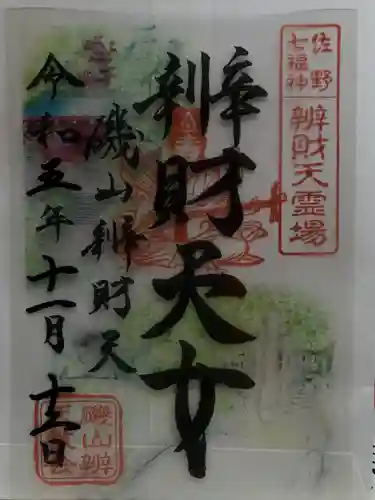 佐野
七福神
辨財天霊場
辨財天女
磯山辨財天
令和五年十一月十三日
磯山辨